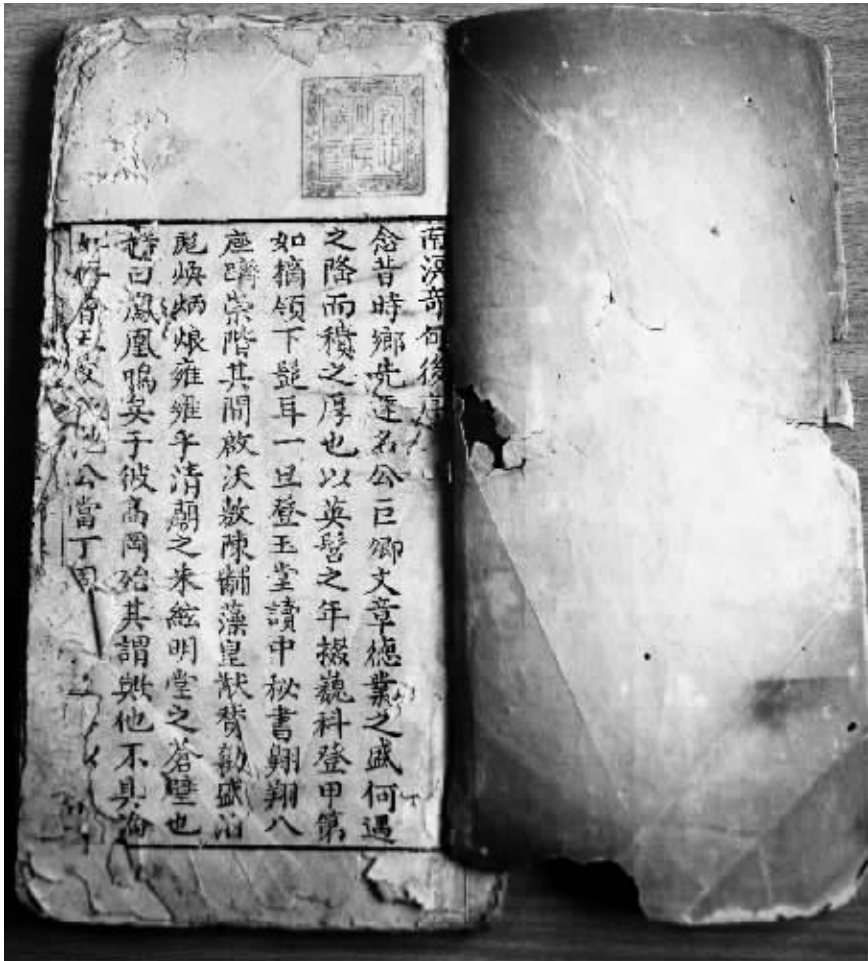 南溟奇甸後序
念昔時鄉先達名公巨卿文章德業之盛何遇
之隆而積之厚也以英髫之年掇巍科登甲第
如摘頷下髭耳一旦登玉堂讀中秘書翱翔八
座躋崇階其間啟沃敷陳黼藻皇猷賛勷盛治
彪煥炳烺雍雍乎清廟之朱絃明堂之蒼璧也
詩曰鳳凰鳴矣于彼高岡殆其謂歟他不具論
公當丁